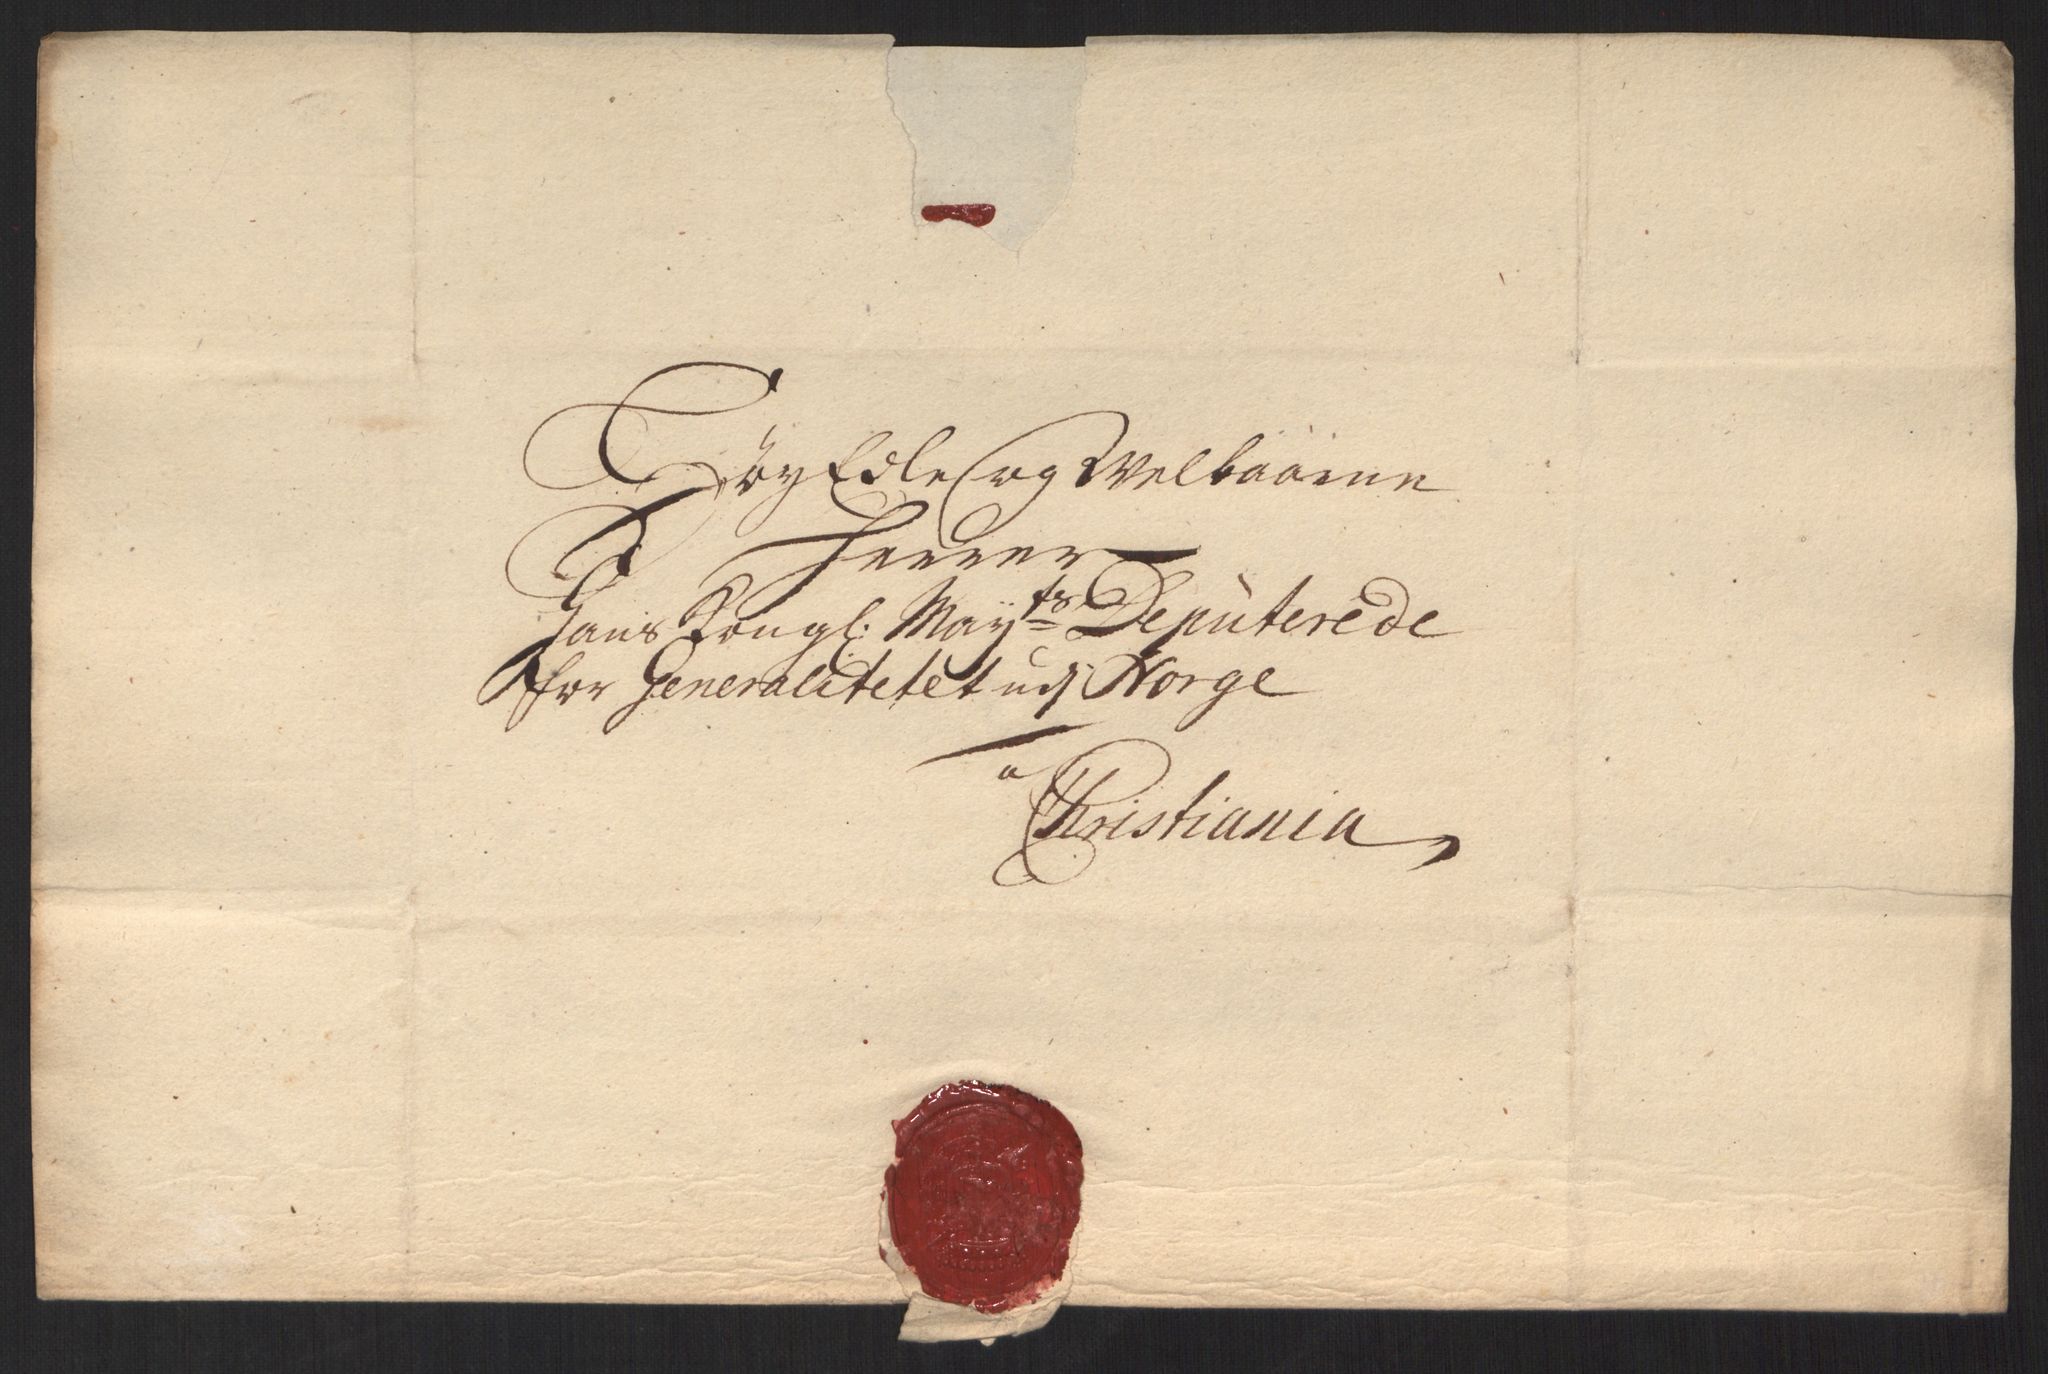 Høy Edle og Welbaarne
Herrer
Hans Kongl: Mayts Deputerede
for Generalitetet udj Norge
a
Christiania